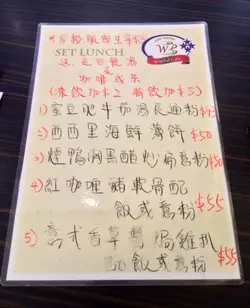 SET LUNCH
送是日餐湯
咖啡或茶
(凍飲加$2 特飲加$5)
1) 蜜豆肥牛茄湯長通粉 $45
2) 西西里海鮮薄餅 $50
3) 煙鴨胸黑醋炒扁意粉 $50
4) 紅咖喱豬軟骨配
飯或意粉 $55
5) 意式香草焗雞扒
配飯或意粉 $55